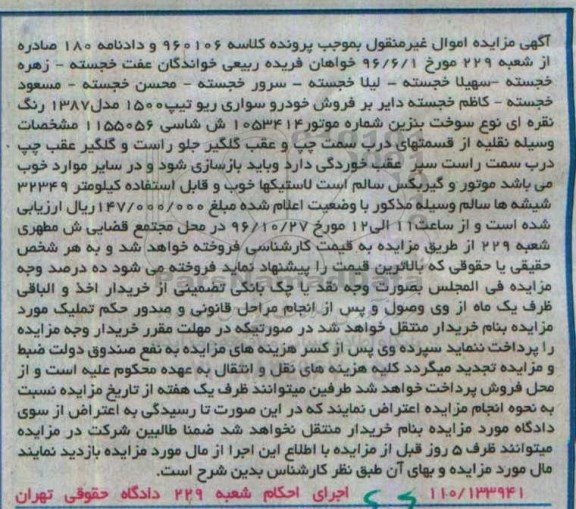 آگهی مزایده اموال غیرمنقول بموجب پرونده کلاسه ۹۶۰۱۰۶ و دادنامه ۱۸۰ صادره
از شعبه ۲۲۹ مورخ ۹۶/۶/۱ خواهان فریده ربیعی خواندگان عفت خجسته - زهره
خجسته -سهیلا خجسته - لیلا خجسته - سرور خجسته - محسن خجسته - مسعود
خجسته - کاظم خجسته دایر بر فروش خودرو سواری ریو تیپ۱۵۰۰ مدل۱۳۸۷ رنگ
نقره ای نوع سوخت بنزین شماره موتور۱۰۵۳۴۱۴ ش شاسی ۱۱۵۵۰۵۶ مشخصات
وسیله نقلیه از قسمتهای درب سمت چپ و عقب گلگیر جلو راست و گلگیر عقب چپ
درب سمت راست سپر عقب خوردگی دارد وباید بازسازی شود و در سایر موارد خوب
می باشد موتور و گیربکس سالم است لاستیکها خوب و قابل استفاده کیلومتر ۳۲۳۴۹
شیشه ها سالم وسیله مذکور با وضعیت اعلام شده مبلغ ۱۴۷/۰۰۰/۰۰۰ریال ارزیابی
شده است و از ساعت۱۱ الی۱۲ مورخ ۹۶/۱۰/۲۷ در محل مجتمع قضایی ش مطهری
شعبه ۲۲۹ از طریق مزایده به قیمت کارشناسی فروخته خواهد شد و به هر شخص
حقیقی یا حقوقی که بالاترین قیمت را پیشنهاد نماید فروخته می شود ده درصد وجه
مزایده فی المجلس بصورت وجه نقد یا چک بانکی تضمینی از خریدار اخذ و الباقی
ظرف یک ماه از وی وصول و پس از انجام مراحل قانونی و صدور حکم تملیک مورد
مزایده بنام خریدار منتقل خواهد شد در صورتیکه در مهلت مقرر خریدار وجه مزایده
را پرداخت ننماید سپرده وی پس از کسر هزینه های مزایده به نفع صندوق دولت ضبط
و مزایده تجدید میگردد کلیه هزینه های نقل و انتقال به عهده محکوم علیه است و از
محل فروش پرداخت خواهد شد طرفین میتوانند ظرف یک هفته از تاریخ مزایده نسبت
به نحوه انجام مزایده اعتراض نمایند که در این صورت تا رسیدگی به اعتراض از سوی
دادگاه مورد مزایده بنام خریدار منتقل نخواهد شد ضمنا طالبین شرکت در مزایده
میتوانند ظرف ۵ روز قبل از مزایده با اطلاع این اجرا از مال مورد مزایده بازدید نمایند
مال مورد مزایده و بهای آن طبق نظر کارشناس بدین شرح است.
۱۱۰/۱۳۳۹۴۱ اجرای احکام شعبه ۲۲۹ دادگاه حقوقی تهران